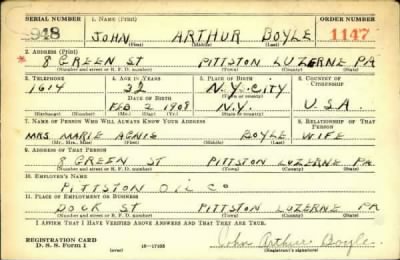 SERIAL NUMBER 1. NAME (Print) ORDER NUMBER
948 JOHN ARTHUR BOYLE 1147
(First) (Middle) (Last)
2. ADDRESS (Print)
8 GREEN ST PITTSTON LUZERNE PA
(Number and street or R. F. D. number) (Town) (County) (State)
3. TELEPHONE 4. AGE IN YEARS 5. PLACE OF BIRTH 6. COUNTRY OF CITIZENSHIP
1614 32 N.Y. CITY
DATE OF BIRTH (Town or county)
FEB 2 1908 N.Y. U.S.A.
(Exchange) (No.) (Mo.) (Day) (Yr.) (State or country)
7. NAME OF PERSON WHO WILL ALWAYS KNOW YOUR ADDRESS 8. RELATIONSHIP OF THAT PERSON
MRS MARIE AGNIS BOYLE WIFE
(Mr., Mrs., Miss) (First) (Middle) (Last)
9. ADDRESS OF THAT PERSON
8 GREEN ST PITTSTON LUZERNE PA
(Number and street or R. F. D. number) (Town) (County) (State)
10. EMPLOYER'S NAME
PITTSTON OIL CO
11. PLACE OF EMPLOYMENT OR BUSINESS
DOCK ST PITTSTON LUZERNE PA
(Number and street or R. F. D. number) (Town) (County) (State)
I AFFIRM THAT I HAVE VERIFIED ABOVE ANSWERS AND THAT THEY ARE TRUE.
REGISTRATION CARD John Arthur Boyle
D. S. S. Form 1 (over) 16—17105 (Registrant's signature)